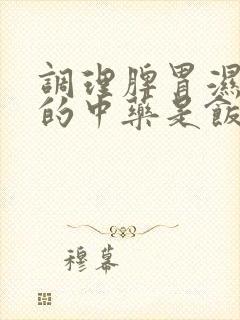 調理脾胃濕
的中藥是飯
穆幕